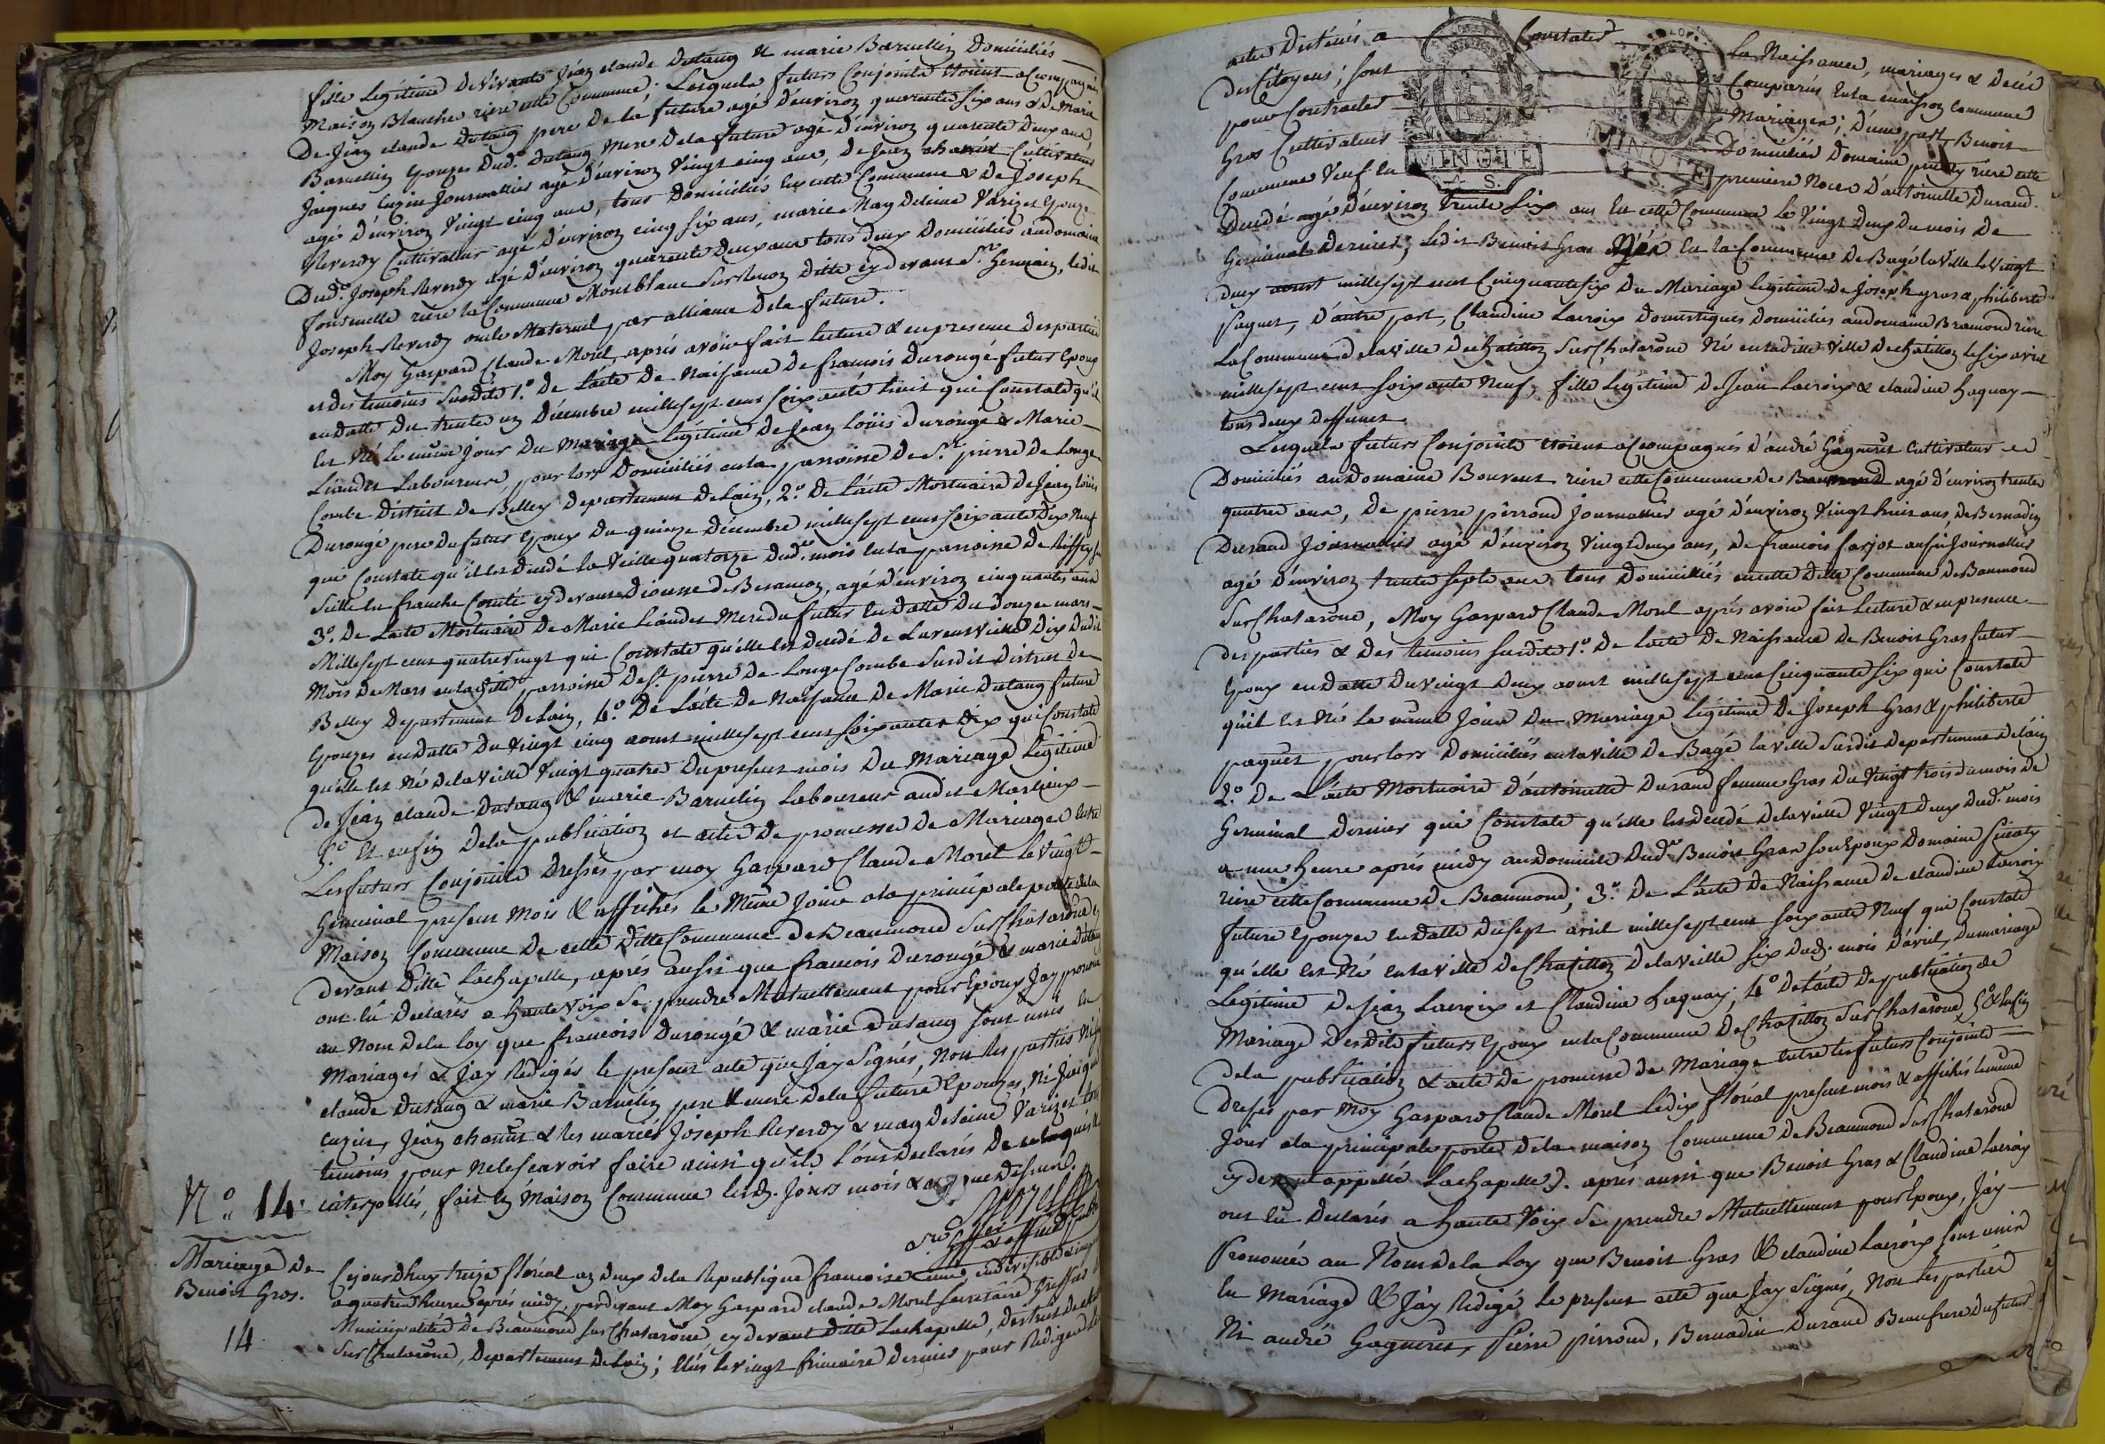 fille Legitime De Vivants Jean claude Dutang & marie Barnellin Domiciliés
Maison Blanche riere cette Commune. Lesquels futurs Conjoints étoient accompagnés
De Jean claude Dutang pere De la future agé d'environ quarente six ans & De Marie
Barnellin Epouze Dud.t Dutang Mere dela future agé d'environ quarente Deux ans
Jacques Cuzin Journallier agé d'environ Vingt cinq ans, de Jean charvet Cultivateur
agé d'environ Vingt cinq ans, tous Domiciliés en cette Commune & De Joseph
Reverdy Cultivateur agé d'environ cinq six ans, marie Magdelaine Varizet Epouze
Dud.t Joseph Reverdy agé d'environ quarente Deux ans tous deux Domiciliés audomaine
fontenelle riere la Commune Montblanc Sur Renon Ditte cydevant S.t Germain, ledit
Joseph Reverdy oncle Maternel par alliance dela future.
Moy Gaspard Claude Morel, aprés avoir fait lecture & en presence des parties
et des temoins Susdits 1.o De L'acte De Naissance de francois Durougé futur Epoux
en datte du trente un Décembre mille sept cens soixante huit qui Constate qu'il
est Né le même jour Du Mariage Legitime De Jean Loüis durougé & Marie
Liaudet Laboureurs, pour lors Domiciliés en la parroisse De S.t pierre De Longe
Combe District de Belley Departement De Lain, 2.o De L'acte Mortuaire De Jean loüis
Durouge pere du futur Epoux Du quinze décembre mille sept cens soixante Dix Neuf
qui Constate qu'il est Décédé la Veille quatorze dud.t mois en la parroisse de
Suitte en franche Comté cydevant Diocesse De Besancon, agé d'environ cinquantes ans
3.o De Lacte Mortuaire De Marie Liaudet Mere du futur en datte du Douze mars
Mille sept cens quatre vingt qui Constate qu'elle est Décédé De Lavant Veille Dix Dudit
Mois De Mars en la ditte parroisse De St pierre De Longe Combe Susdit District de
Belley Departement De Lain, 4.o De L'acte De Naissance De Marie Dutang future
Epouzes en datte Du Vingt cinq aoust mille sept cens soixantes dix qui Constate
qu'elle est Né dela Veille Vingt quatre Du present mois Du Mariage Legitime
de Jean claude Dutang & marie Barnellin Laboureurs audit Marlieux
5.o Et enfin De la publication et acte De promesse De Mariage entre
Les futurs Conjoints Dressés par moy Gaspard Claude Morel le Vingt
Germinal present Mois & affichés le Meme Jour ala principale porte dela
Maison Commune De cette Ditte Commune de Beaumond Sur Chalaronne cy
devant Ditte Lachapelle, aprés aussi que francois Durougé & marie Dutang
ont lû Declarés a Haute Voix Se prendre Mutuellement pour Epoux Jay prononcé
au Nom De la Loy que francois Durougé & marie Dutang Sont unis en
Mariages & Jay Rédigés le present acte que Jay Signés, Non les parties Ni Jean
claude Dutang & marie Barnellin pere & mere dela future Epouzes, Ni Jacques
Cuzin, Jean charvet & les mariés Joseph Reverdy & magdelaine Varizet tous
temoins pour ne le Scavoir faire ainsi qu'ils L'ont Declarés De ce
interpellés, fait en Maison Commune lesd. Jours mois & an que dessus.
Morel
Sec.re Gref.er & officier public
N.o 14.
Mariage De
Benoit Gros.
14
Cejourdhuy treize floréal an deux dela Republique francoise une indivisible
a quatre heures aprés midy, pardevant Moy Gaspard claude Morel Secretaire Greffier
Municipalité De Beaumond Sur Chalaronne, cydevant Ditte Lachapelle, District de chatillon
Sur Chalaronne, Departement De Lain; Elus le vingt frimaire Dernier pour Rediger les
actes Destinés a Constater La Naissance, mariages & Décés
Des Citoyens; Sont Comparus en la maison Commune
pour Contracter Mariage; D'une part Benoit
Gros Cultivateur Domicilié Domaine riere cette
Commune Veuf en premiere Noces D'antoinette Durand
MINUTE
S.
MINUTE
S.
Décédé agé d'environ trente Six ans en cette Commune le Vingt Deux du mois de
Germinal Dernier; Ledit Benoit Gros Né en la Commune De Bagé la Ville le Vingt
deux aoust mille sept cent Cinquante six Du Mariage Legitime De Joseph gros & philiberte
Paquet, D'autre part, Claudine Lacroix Domestiques domiciliés audomaine Bramond riere
La Commune de laville De chatillon Sur Chalarone Né en ladite Ville De chatillon le six avril
mille sept cens soixante Neuf, fille Legitime De Jean Lacroix & claudine Laquay
tous deux deffunct.
Lesquels futurs Conjoints étoient accompagnés d'andré Gagneret Cultivateur
Domiciliés au Domaine Bouvent riere cette Commune De Beaumond agé d'environ trente
quatre ans, De pierre pirroud Journallier agé d'environ Vingt huit ans, De Bernadin
Durand Journallier agé d'environ Vingt deux ans, De francois farjot aussi Journallier
agé d'environ trente sept ans tous Domiciliés en cette Ditte Commune De Baumond
Sur Chalarone, Moy Gaspard Claude Morel aprés avoir fait Lecture & en presence
des parties & Des temoins susdits 1.o De Lacte De Naissance De Benoit Gros futur
Epoux en datte Du vingt Deux aoust mille sept cens Cinquante Six qui Constate
qu'il est Né Le même Jour Du Mariage Legitime de Joseph Gros & philiberte
paquet pour lors Domiciliés en la ville De Bagé la Ville Susdit Departement De lain
2.o De L'acte Mortuaire d'antoinette Durand femme Gros Du Vingt trois du mois De
Germinal Dernier qui Constate qu'elle est Décédé De la veille Vingt deux Dud.t mois
a une heure aprés midy au Domicile Dud.t Benoit Gros son Epoux Domaine
riere cette Commune De Beaumond; 3.o De L'acte De Naissance De claudine Lacroix
future Epouzes en datte Du sept avril mille sept cens soixante Neuf qui Constate
qu'elle est Né en la ville De Chatillon De la veille Six Dud.t mois D'avril, Du mariage
Légitime De Jean Lacroix et Claudine Laquay; 4.o De L'acte De publication de
Mariage Desdits futurs Epoux en la Commune De Chatillon Sur Chalarone, 5.o & Enfin
dela publication & acte De promesse De Mariage entre les futurs Conjoints
Dressés par Moy Gaspard Claude Morel Le dix floréal present mois & affichés le meme
Jour ala principale porte De la maison Commune De Beaumond Sur Chalarone
cy devant appellé Lachapelle). aprés aussi que Benoit Gros & Claudine Lacroix
ont lû Declarés a haute Voix Se prendre Mutuellement pour Epoux, Jay
Prononcé au Nom de la Loy que Benoit Gros & claudine Lacroix Sont unis
En Mariage & Jay Rédigé Le present acte que Jay Signés, Non les parties
Ni andré Gagneret, Pierre pirroud, Bernadin Durand Beaufrere Du futur